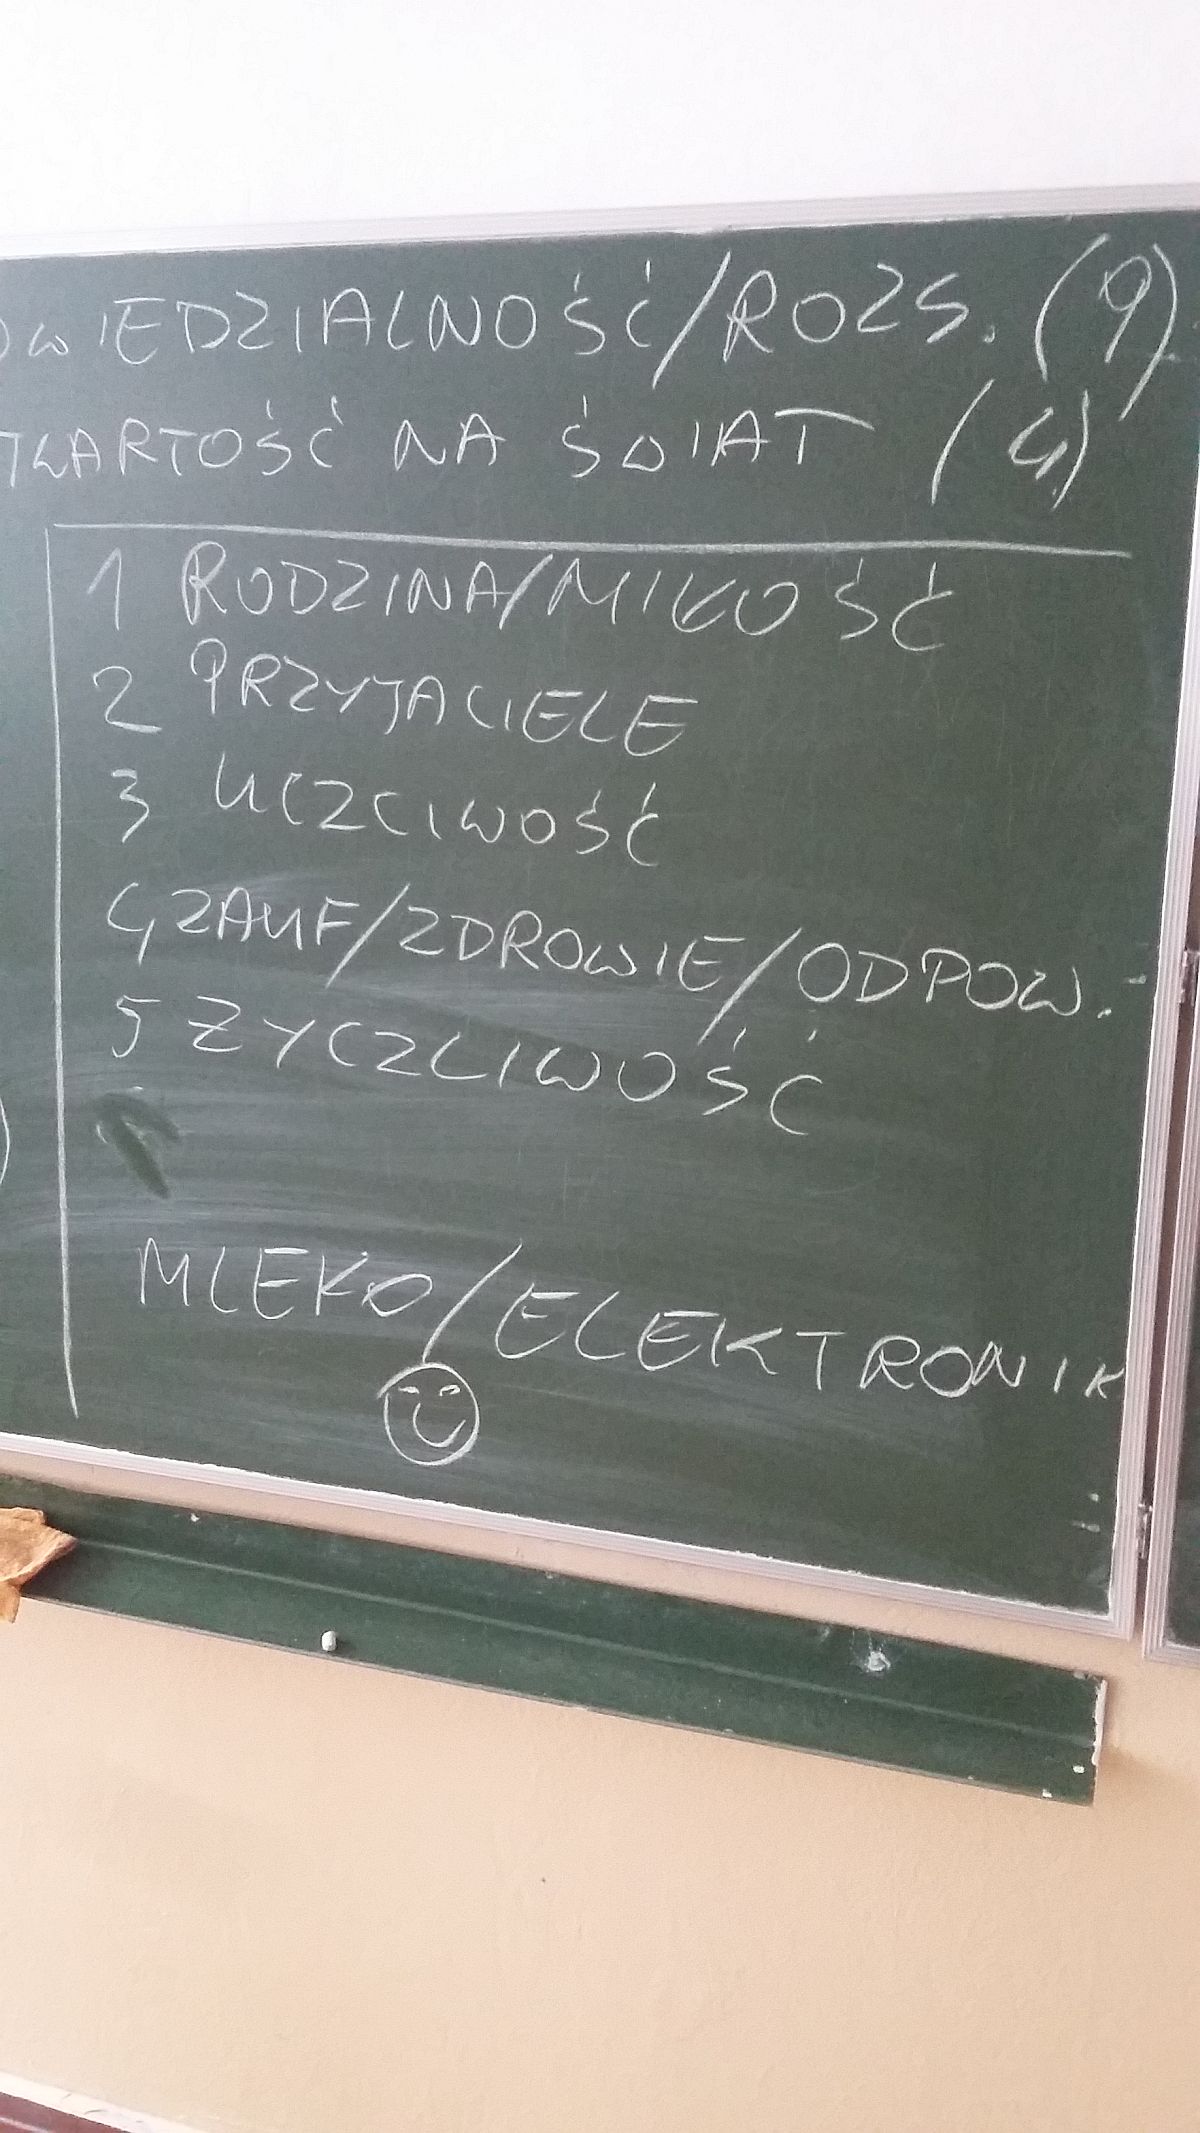 OWIEDZIALNOŚĆ/ROZS. (9)
TWARTOŚĆ NA ŚWIAT (4)
1 RODZINA/MIŁOŚĆ
2 PRZYJACIELE
3 UCZCIWOŚĆ
4 ZAUF/ZDROWIE/ODPOW.
5 ŻYCZLIWOŚĆ
MLEKO/ELEKTRONIK